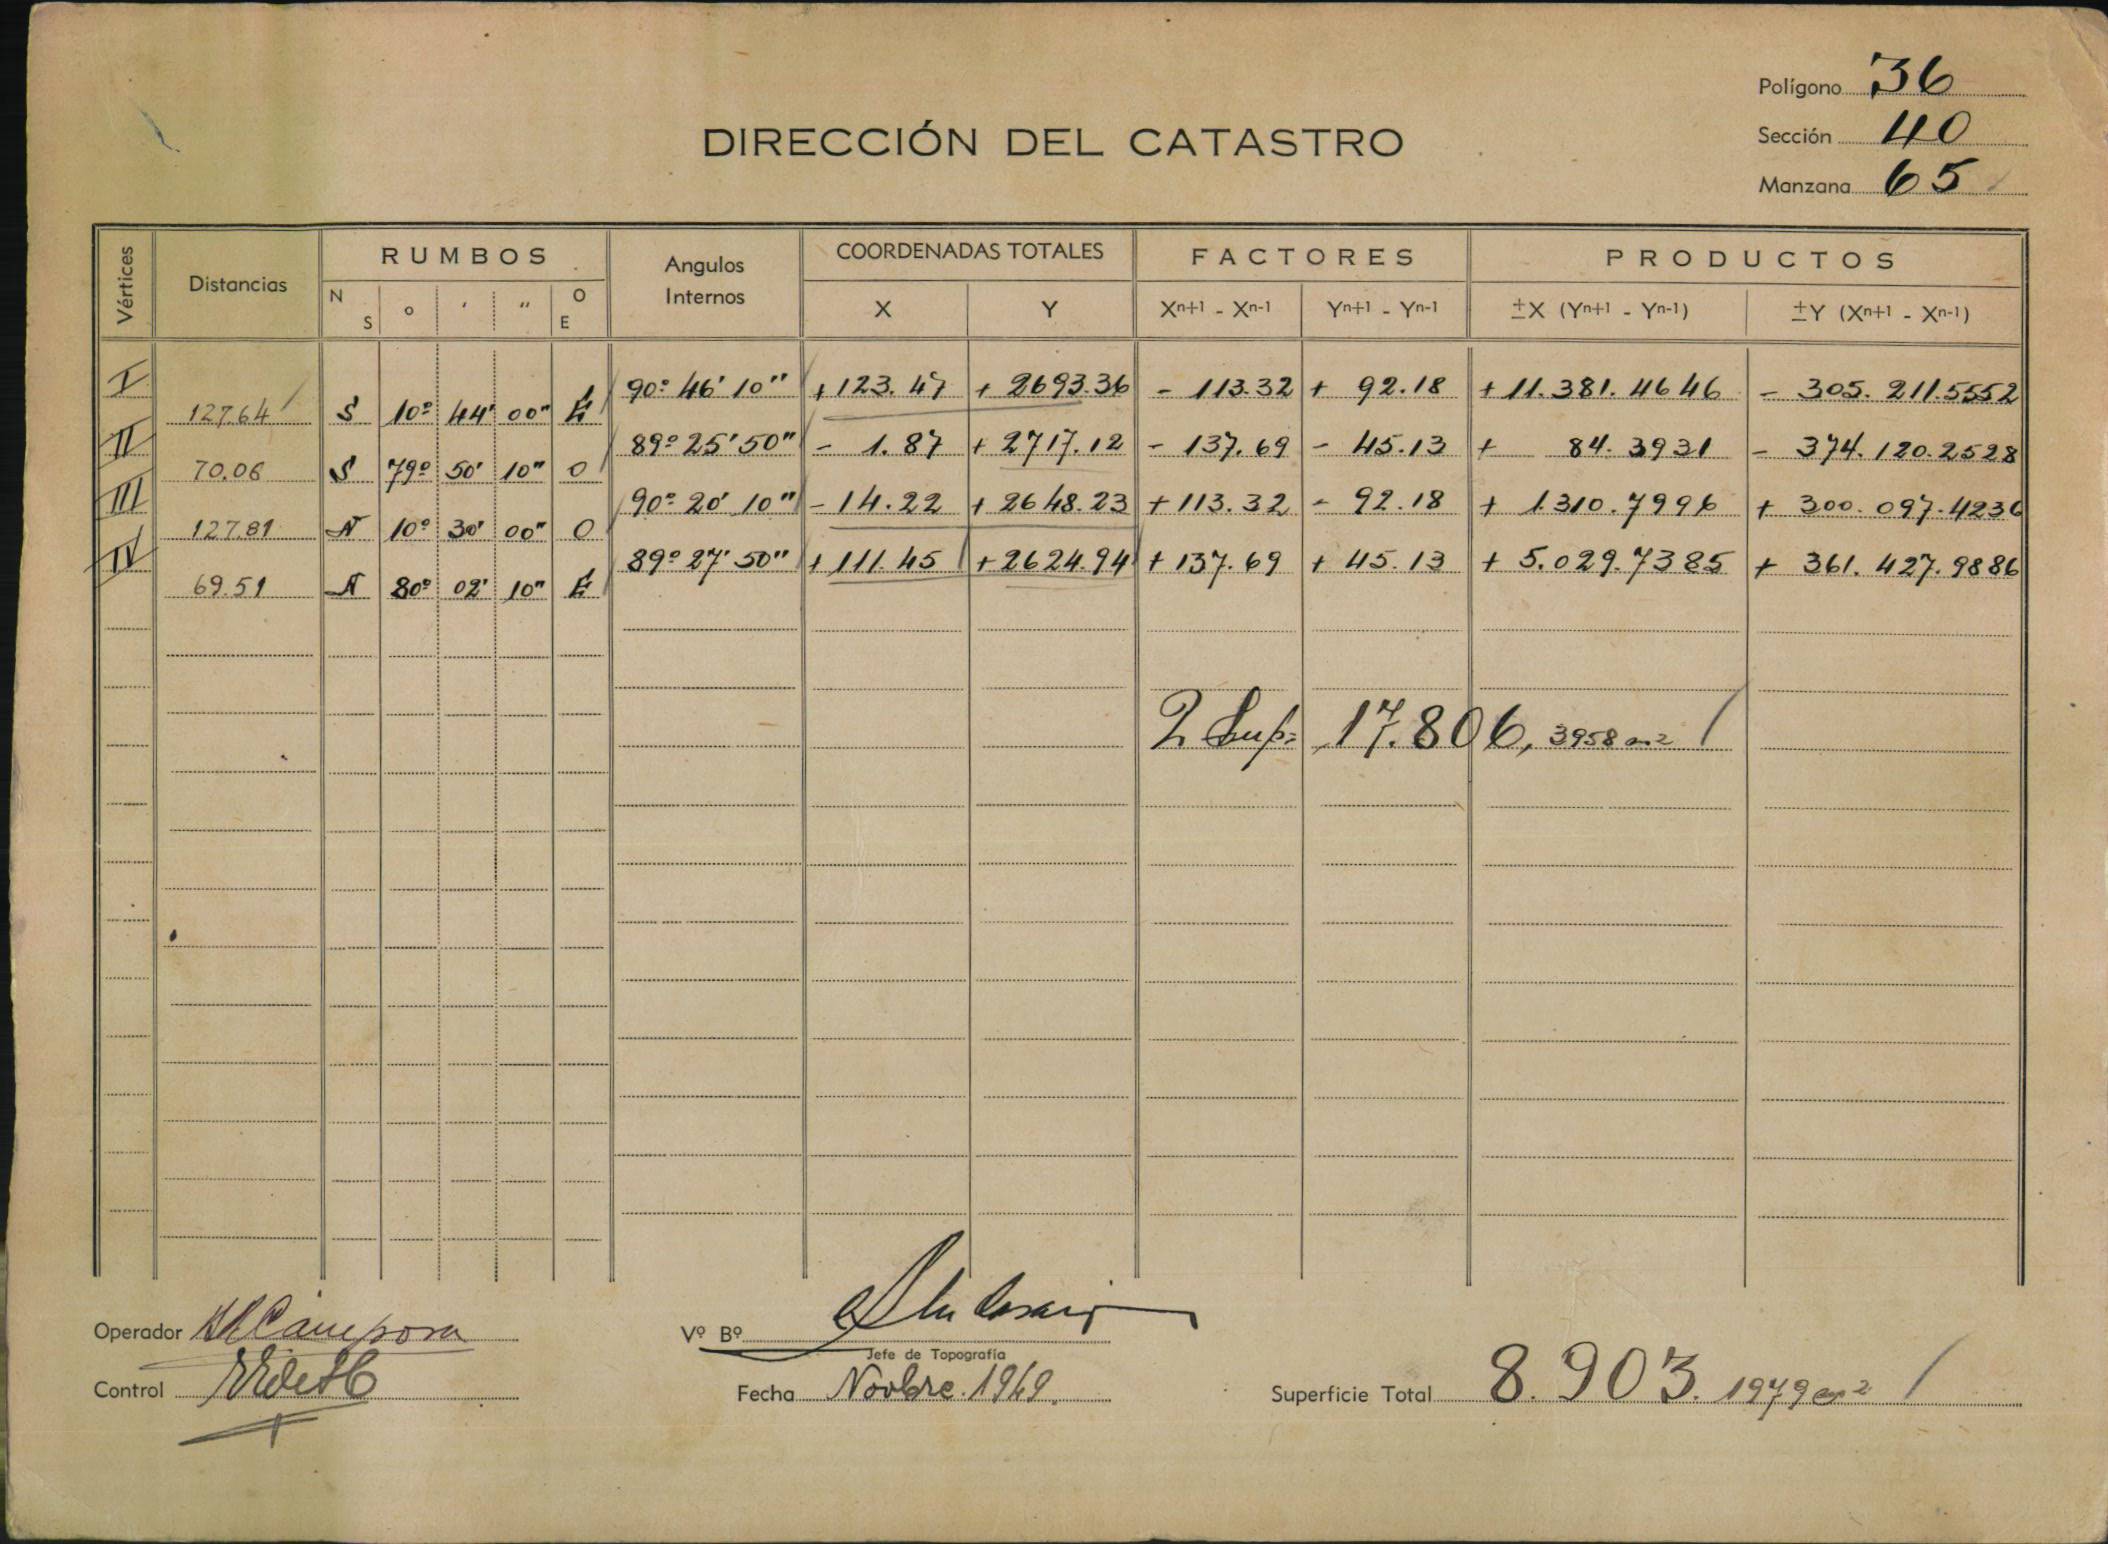 Polígono 36
DIRECCIÓN DEL CATASTRO
Sección 40
Manzana 65
Vértices Distancias RUMBOS Angulos Internos COORDENADAS TOTALES FACTORES PRODUCTOS
N S ° ' " O E X Y Xn+1 - Xn-1 Yn+1 - Yn-1 ±X (Yn+1 - Yn-1) ±Y (Xn+1 - Xn-1)
I 90º 46' 10" +123.47 + 2693.36 - 113.32 + 92.18 + 11.381.4646 - 305.211.5552
127.64 S 10º 44' 00" E
II 89º 25' 50" - 1.87 + 2717.12 - 137.69 - 45.13 + 84.3931 - 374.120.2528
70.06 S 79º 50' 10" O
III 90º 20' 10" - 14.22 + 2648.23 + 113.32 - 92.18 + 1310.7996 + 300.097.4236
127.81 N 10º 30' 00" O
IV 89º 27' 50" + 111.45 + 2624.94 + 137.69 + 45.13 + 5.029.7385 + 361.427.9886
69.51 N 80º 02' 10" E
2 Sup= 17.806,3958 m2
Operador
Vº Bº
Jefe de Topografía
Control
Fecha Novbre. 1949.
Superficie Total 8.903.1979 m2